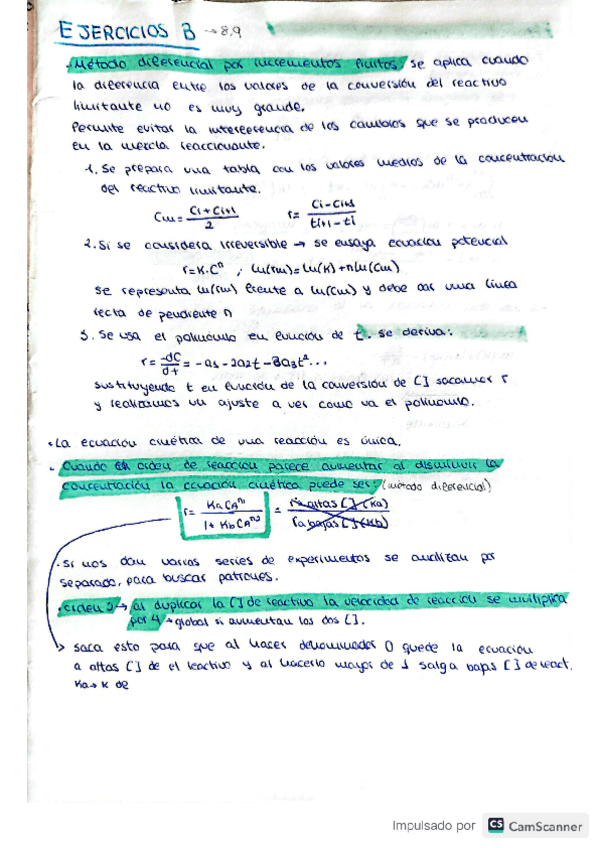 EJERCICIOS B → 8,9
· Método diferencial por incrementos finitos, se aplica cuando
la diferencia entre los valores de la conversión del reactivo
limitante no es muy grande.
Permite evitar la interferencia de los cambios que se producen
en la mezcla reaccionante.
1. Se prepara una tabla con los valores medios de la concentración
del reactivo limitante.
Cm = (Ci + Ci+1)/2    r = (Ci - Ci+1)/(ti+1 - ti)
2. Si se considera irreversible → se ensaya ecuación potencial
r = K·Cⁿ ; ln(rm) = ln(K) + n ln(Cm)
Se representa ln(rm) frente a ln(Cm) y debe dar una línea
recta de pendiente n
3. Se usa el polinomio en función de t. se deriva:
r = -dC/dt = -a1 - 2a2t - 3a3t²...
Sustituyendo t en función de la conversión de [] sacamos r
y realizamos un ajuste a ver como va el polinomio.
· La ecuación cinética de una reacción es única.
· Cuando el orden de reacción parece aumentar al disminuir la
concentración la ecuación cinética puede ser: (método diferencial)
r = KaCAⁿ¹/(1 + KbCAⁿ²) = r a altas [] (Ka)/r a bajas [] (Kb)
· Si nos dan varias series de experimentos se analizan por
separado, para buscar patrones.
· orden 2 → al duplicar la [] de reactivo la velocidad de reacción se multiplica
por 4 → global si aumentan las dos [].
→ saca esto para que al hacer denominador 0 quede la ecuación
a altas [] de el reactivo y al hacerlo mayor de 1 salga bajas [] de react.
Ka → K de
Impulsado por CS CamScanner